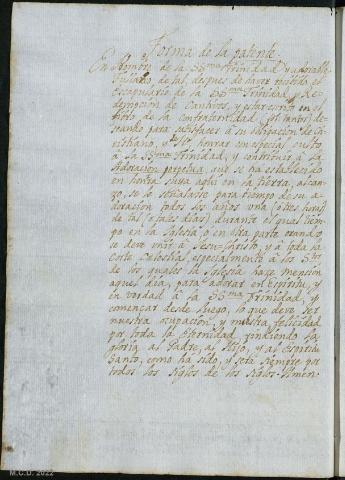 Forma de la patente.
En Nombre de la SS.ma Trinidad, y adorable
Fulano, de tal, despues de haver recibido el
escapulario de la SS.ma Trinidad, y Re-
dempcion de Cautivos, y estar escrito en el
libro de la confraternidad (ō) de-
seando para satisfacer à su obligacion de Ca-
ristiano, y honrar con especial culto
à la SS.ma Trinidad, y contribuir à la
Adoracion perpetua, que se ha establecido
en honra suya aqui en la tierra, alcan-
zo, se le señalasse para tiempo de su a-
doracion todos los años una (o tres horas)
de tal (o tales dias) durante el qual tiem-
po en la Iglesia ò en otra parte orando
se deve unir à Jesu-Christo, y à toda la
corte Celestial, especialmente à los S.tos
de los quales la Iglesia hace mencion
aquel dia, para adorar en Espiritu, y
en verdad à la SS.ma Trinidad, y
comenzar desde luego, lo que deve ser
nuestra ocupacion, y nuestra felicidad
por toda la Eternidad, rindiendo la
gloria al Padre, al Hijo, y al Espiritu
Santo, como ha sido, y serà siempre por
todos los siglos de los siglos. Amen.
M.C.D. 2022